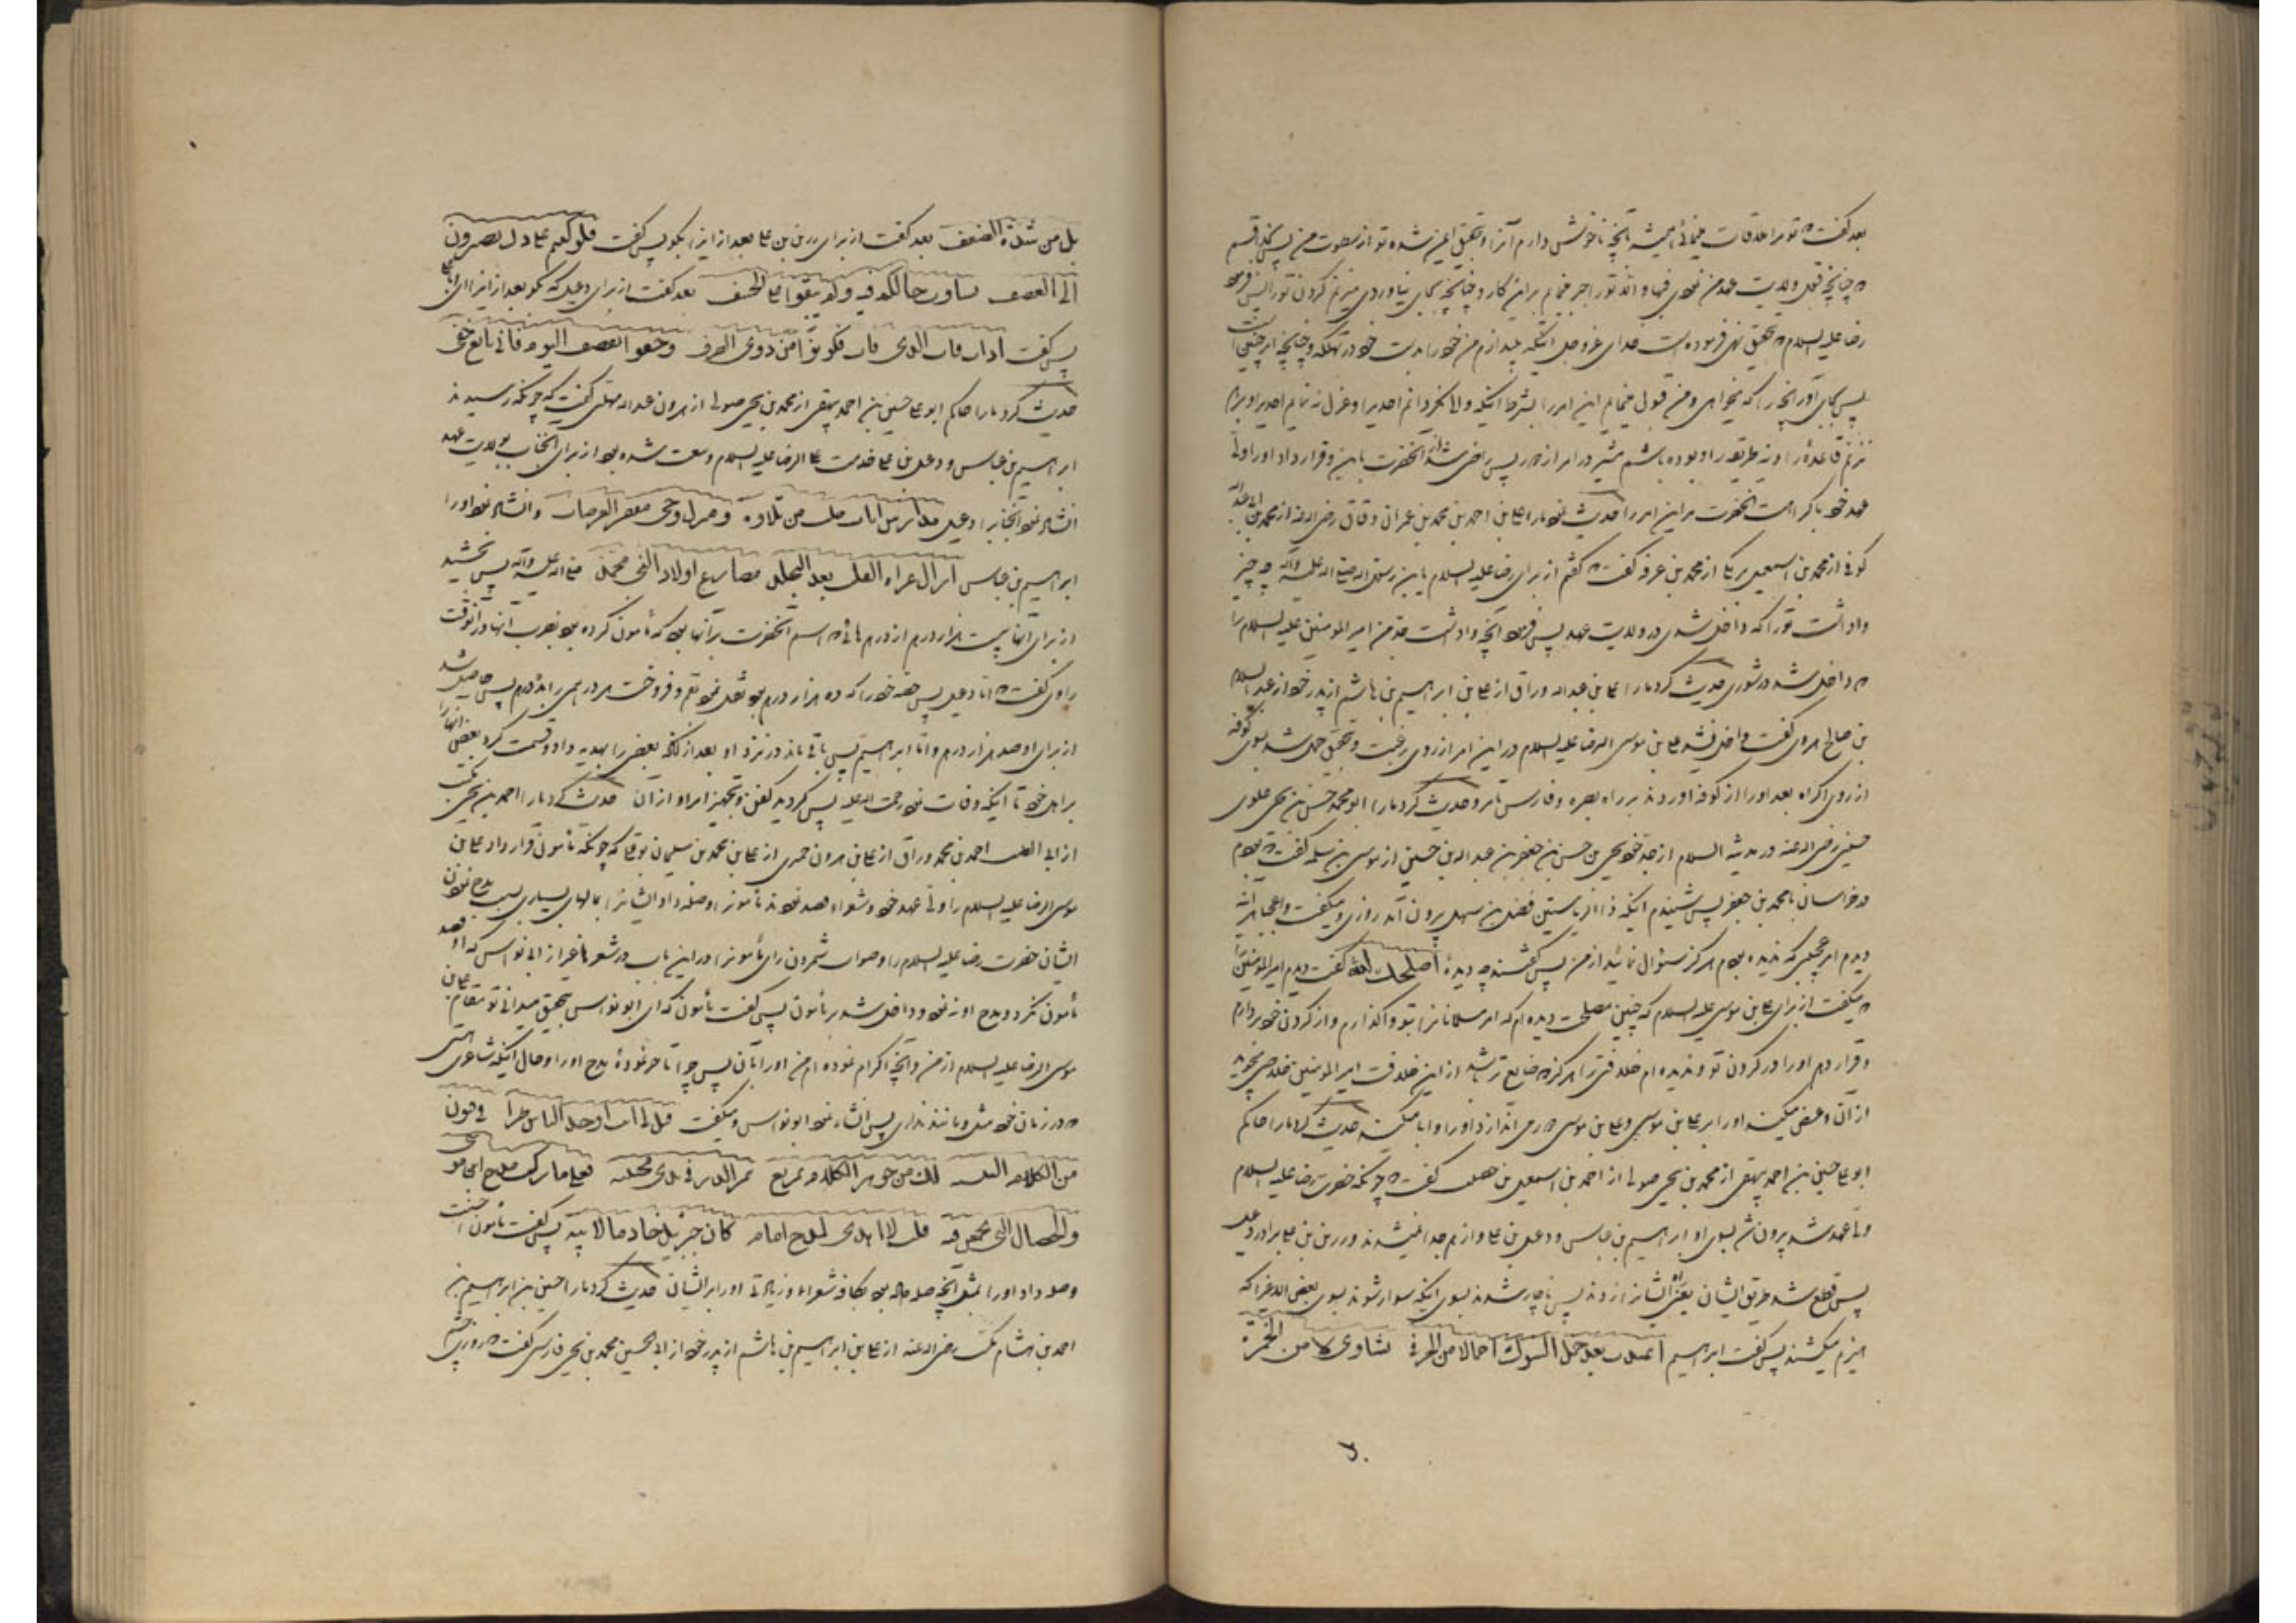 بعد گفت که تو مرا ملاقات مینمائی همیشه بآنچه ناخوش دارم آنرا و بتحقیق ایمن شده تو از سطوت من پس بخدا قسم
که چنانچه قبول ولایت عهد من نمودی فبها والا تو را جبر مینمایم بر این کار و چنانچه بجای نیاوردی میزنم گردن تو را پس فرمود
رضا علیه السلام که بتحقیق نهی فرموده است خدای عزوجل اینکه بیندازم من خود را بدست خود در تهلکه و چنانچه امر چنین است
پس بجای آور آنچه را که میخواهی و من قبول مینمایم این امر را بشرط اینکه والی نگردانم احدیرا و عزل ننمایم احدیرا و برهم
نزنم قاعده را و نه طریقه را و بوده باشم مشیر در امر از دور پس راضی شد از آنحضرت باین و قرار داد او را ولی
عهد خود با کراهت آنحضرت مر این امر را حدیث نمود ما را علی بن احمد بن محمد بن عمران دقاق رضی الله عنه از محمد بن ابی عبدالله
کوفی از محمد بن اسمعیل برمکی از محمد بن عرفه گفت که گفتم از برای رضا علیه السلام یا بن رسول الله صلی الله علیه وآله چه چیز
واداشت تو را که داخل شدی در ولایت عهد پس فرمود آنچه واداشت جد من امیر المومنین علیه السلام را
که داخل شد در شوری حدیث کرد ما را علی بن عبدالله وراق از علی بن ابراهیم بن هاشم از پدر خود از عبد السلام
بن صالح هروی گفت داخل نشد علی بن موسی الرضا علیه السلام در این امر از روی رغبت و بتحقیق حمل شد بسوی کوفه
از روی اکراه بعد او را از کوفه آوردند بر راه بصره و فارس تا مرو حدیث کرد ما را ابو محمد حسن بن یحیی علوی
حسینی رضی الله عنه در مدینه السلام از جد خود یحیی بن حسن بن جعفر بن عبدالله بن حسین از موسی بن سلمه گفت که بودم
در خراسان با محمد بن جعفر پس شنیدم اینکه ذا الریاستین فضل بن سهل بیرون آمد روزی و میگفت واعجباه
دیدم امر عجیبی که ندیده بودم هرگز سئوال نمائید از من پس گفتند چه دیدهٔ اصلحک الله گفت دیدم امیر المومنین را
که میگفت از برای علی بن موسی علیه السلام که چنین مصلحت دیده ام که امر مسلمانانرا بتو واگذارم و از گردن خود بردارم
و قرار دهم او را در گردن تو و ندیده ام خلافتی را هرگز که ضایع تر باشد از این خلافت امیر المومنین خلاصی میجوید
از آن و عرض میکند او را بر علی بن موسی و علی بن موسی دور می اندازد او را و ابا میکند حدیث کرد ما را حاکم
ابو علی حسین بن احمد بیهقی از محمد بن یحیی صولی از احمد بن اسمعیل بن خصیب گفت که چونکه حضرت رضا علیه السلام
ولی عهد شد بیرون شد بسوی او ابراهیم بن عباس و دعبل بن علی و از هم جدا نمیشدند و رزین بن علی برادر دعبل
پس قطع شد طریق ایشان یعنی راه ایشانرا زدند پس ناچار شدند بسوی اینکه سوار شوند بسوی بعض الاغها که
هیزم میکشند پس گفت ابراهیم اعیدت بعد حمل الشوک احمالا من الخزف نشاوی لا من الخمرة
بل من شدة الضعف بعد گفت از برای رزین بن علی بعد از این را بگو پس گفت فلو کنتم علی ذلک تصیرون
الی القصف تساوت حالکم فیه ولا تبقوا علی الخسف بعد گفت از برای دعبل که بگو بعد از این را ای ابا علی
پس گفت اذا فات الذی فات فکونوا من ذوی الظرف وخفوا نقصف الیوم فانی بائع خفی
حدیث کرد ما را حاکم ابو علی حسین بن احمد بیهقی از محمد بن یحیی صولی از هرون بن عبدالله مهلبی گفت که چونکه رسیدند
ابراهیم بن عباس و دعبل بن علی خدمت علی الرضا علیه السلام و بیعت شده بود از برای آنجناب بولایت عهد
انشاد نمود آنجناب را دعبل مدارس آیات خلت من تلاوة ومنزل وحی مقفر العرصات و انشاد نمود او را
ابراهیم بن عباس ازال عزاء القلب بعد التجلد مصارع اولاد النبی محمد صلی الله علیه وآله پس بخشید
از برای آنها بیست هزار درهم از درهم هائی که اسم آنحضرت بر آنها بود که مأمون کرده بود بضرب آنها در آنوقت
راوی گفت که اما دعبل پس حصه خود را که ده هزار درهم بود نقل نمود بقم و فروخت هر درهمی را بده درهم پس حاصل شد
از برای او صد هزار درهم و اما ابراهیم پس باقی ماند در نزد او بعد از آنکه بعضی را بهدیه داد و قسمت کرد بعضی آنها را
بر اهل خود تا اینکه وفات نمود رحمت الله علیه پس گردید کفن و تجهیز امر او از آن حدیث کرد ما را احمد بن یحیی مکتب
از ابی الطیب احمد بن محمد وراق از علی بن هرون حمیری از علی بن محمد بن سلیمان نوفلی که چونکه مأمون قرار داد علی بن
موسی الرضا علیه السلام را ولی عهد خود و شعراء قصد نمودند مأمونرا و صله داد ایشانرا بمالهای بسیاری بسبب مدح نمودن
ایشان حضرت رضا علیه السلام را و صواب شمردن رای مأمونرا در این باب در شعرها غیر از ابی نواس که او قصد
مأمون نکرد و مدح او نه نمود و داخل شد بر مأمون پس گفت مأمون که ای ابو نواس بتحقیق میدانی تو مقام علی بن
موسی الرضا علیه السلام از من و آنچه اکرام نموده ام من او را بآن پس چرا تأخیر نمودهٔ مدح او را و حال آنکه شاعری هستی
که در زمان خود مثل و مانند نداری پس انشاء نمود ابو نواس و میگفت قیل لی انت اوحد الناس طرا فی فنون
من الکلام النبیه لک من جوهر الکلام بدیع یثمر الدر فی یدی مجتنیه فعلی ما ترکت مدح ابن موسی
والخصال التی تجمعن فیه قلت لا اهتدی لمدح امام کان جبرئیل خادما لابیه پس گفت مأمون احسنت
وصله داد او را بمثل آنچه صله داده بود بکافه شعراء و زیادتی او را بر ایشان حدیث کرد ما را حسین بن ابراهیم بن
احمد بن هشام مکتب رضی الله عنه از علی بن ابراهیم بن هاشم از پدر خود از ابی الحسین محمد بن یحیی فارسی گفت که روزی